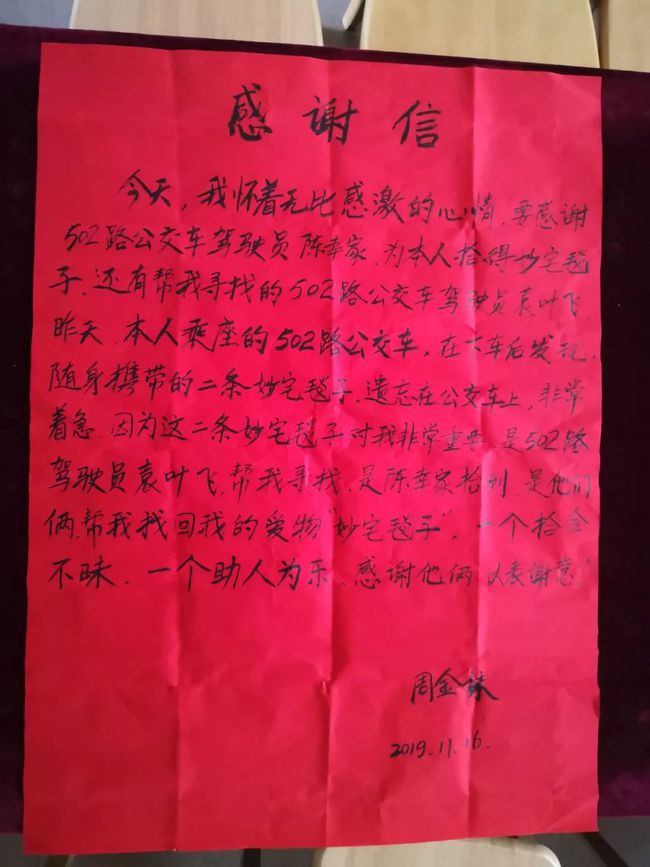 感谢信
今天，我怀着无比感激的心情，要感谢
502路公交车驾驶员陈幸家，为本人拾得妙宅毯
子，还有帮我寻找的502路公交车驾驶员袁叶飞，
昨天，本人乘座的502路公交车，在下车后发现，
随身携带的二条妙宅毯子，遗忘在公交车上，非常
着急，因为这二条妙宅毯子对我非常重要，是502路
驾驶员袁叶飞，帮我寻找，是陈幸家拾到，是他们
俩，帮我找回我的爱物“妙宅毯子”，一个拾金
不昧，一个助人为乐，感谢他俩“以表谢意”
周金妹
2019.11.16.